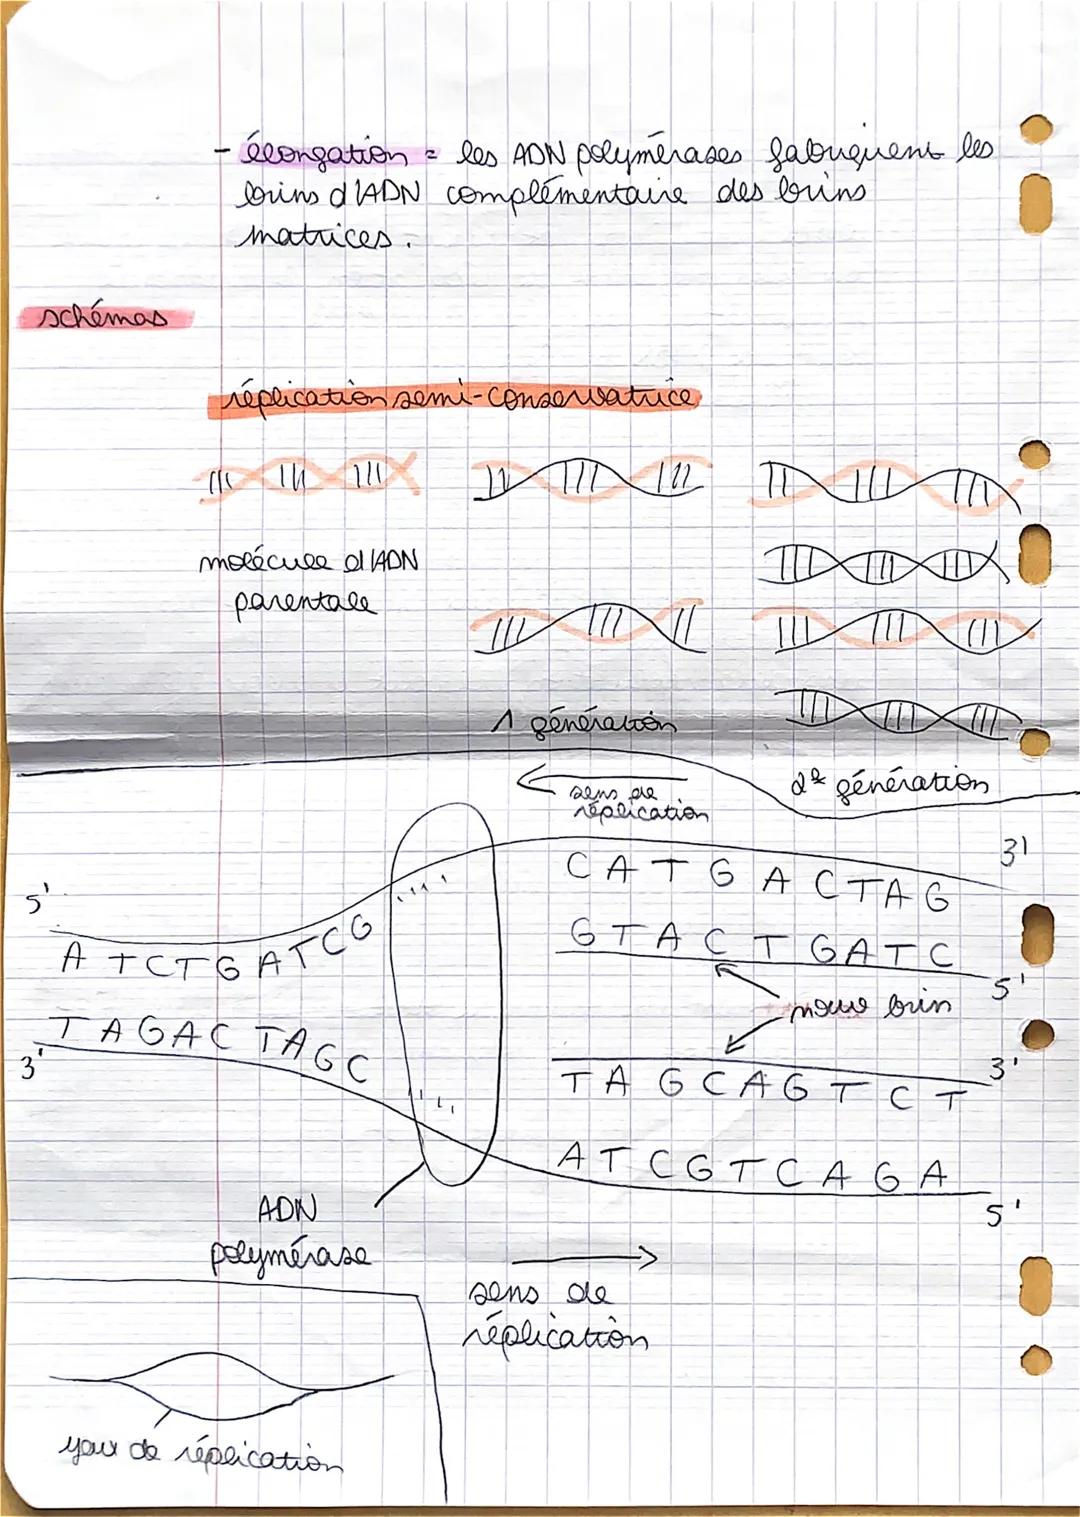 - élongation = les ADN polymérases fabriquent les
brins d'ADN complémentaire des brins
matrices.
schémas
réplication semi-conservatrice
molécule d'ADN
parentale
1 génération
2e génération
sens de
réplication
5'
A T C T G A T C G
T A G A C T A G C
3'
C A T G A C T A G
3'
G T A C T G A T C
5'
nouv brin
3'
T A G C A G T C T
A T C G T C A G A
5'
ADN
polymérase
sens de
réplication
yeux de réplication